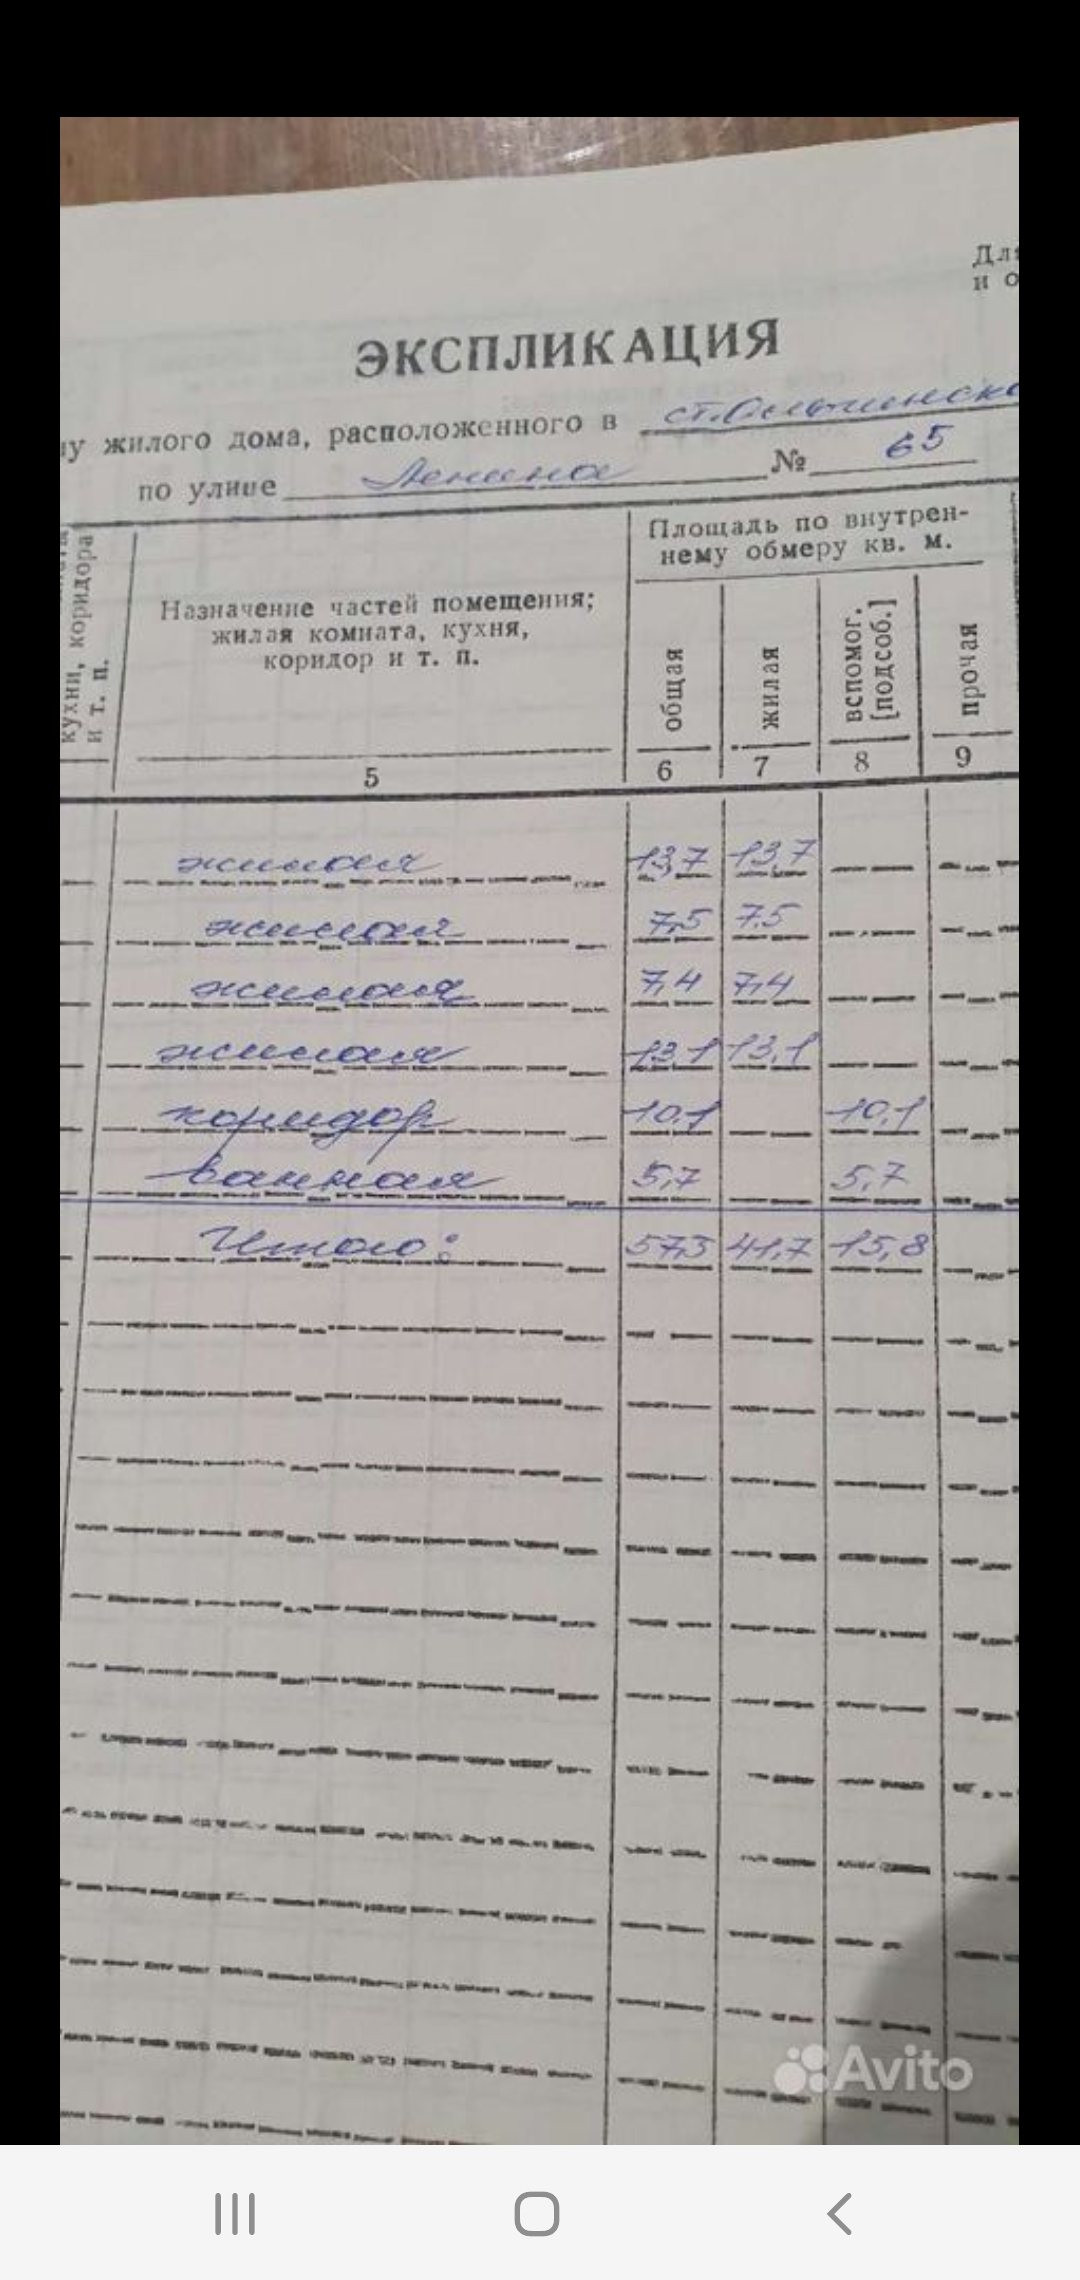 Для
и о
ЭКСПЛИКАЦИЯ
жилого дома, расположенного в ст.
по улице Ленина № 65
кухни, коридора
и т. п.
Назначение частей помещения;
жилая комната, кухня,
коридор и т. п.
Площадь по внутрен-
нему обмеру кв. м.
общая
жилая
вспомог.
[подсоб.]
прочая
5 6 7 8 9
жилая 13,7 13,7
жилая 7,5 7.5
жилая 7,4 7,4
жилая 13,1 13,1
коридор 10,1 10,1
ванная 5,7 5,7
Итого: 57,5 41,7 15,8
Avito